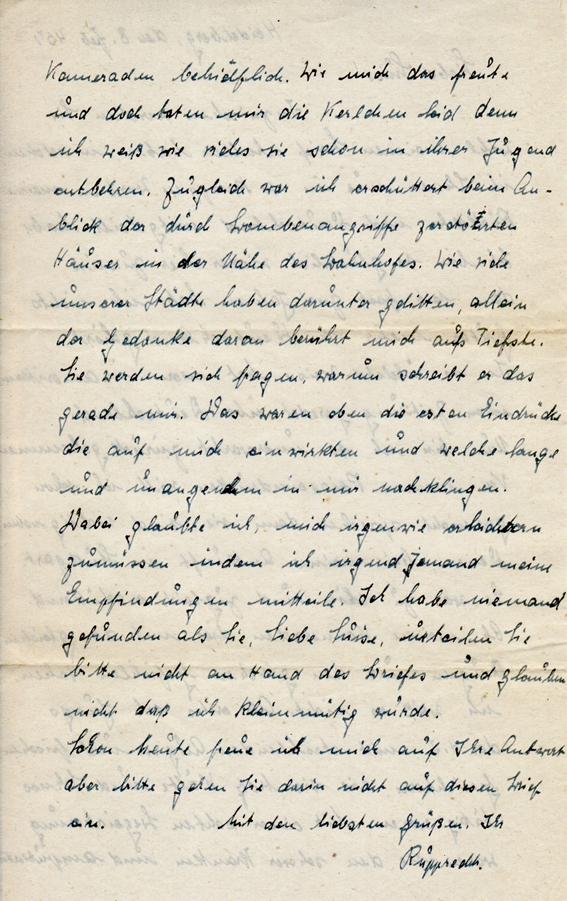 Kameraden behilflich. Wie mich das freute
und doch taten mir die Kerlchen leid denn
ich weiß wie vieles sie schon in ihrer Jugend
entbehren. Zugleich war ich erschüttert beim An-
blick der durch Bombenangriffe zerstörten
Häuser in der Nähe des Bahnhofes. Wie viele
unserer Städte haben darunter gelitten, allein
der Gedanke daran berührt mich aufs Tiefste.
Sie werden sich fragen, warum schreibt er das
gerade mir. Das waren eben die ersten Eindrücke
die auf mich einwirkten und welche lange
und unangenehm in mir nachklingen.
Dabei glaubte ich, mich irgenwie erleichtern
zumüssen indem ich irgend Jemand meine
Empfindungen mitteile. Ich habe niemand
gefunden als Sie, liebe Luise, urteilen Sie
bitte nicht an Hand des Briefes und glauben
nicht daß ich kleinmütig würde.
Schon heute freue ich mich auf Ihre Antwort
aber bitte gehen Sie darin nicht auf diesen Brief
ein. Mit den liebsten Grüßen. Ihr
Rupprecht.